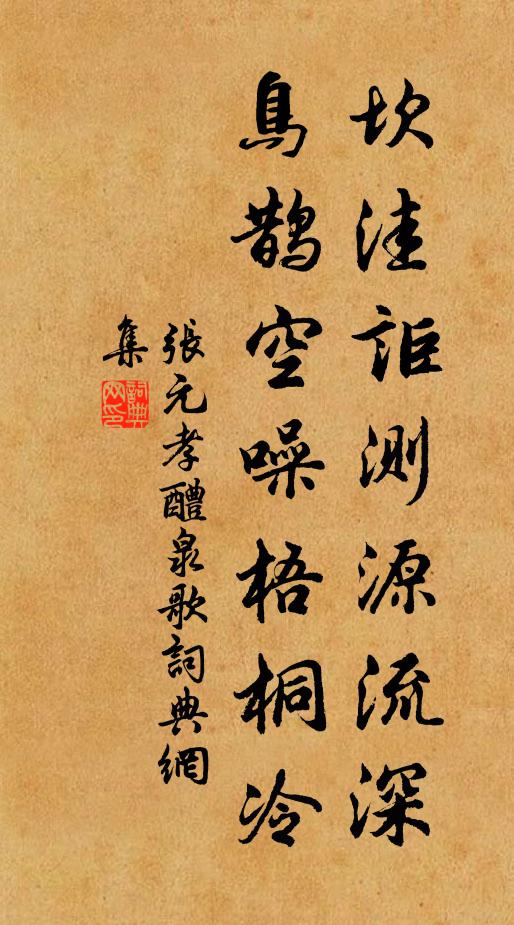 坎洼詎測源流深
烏鵲空噪梧桐冷
張元孝醴泉歌詞典網
集
詞典網印